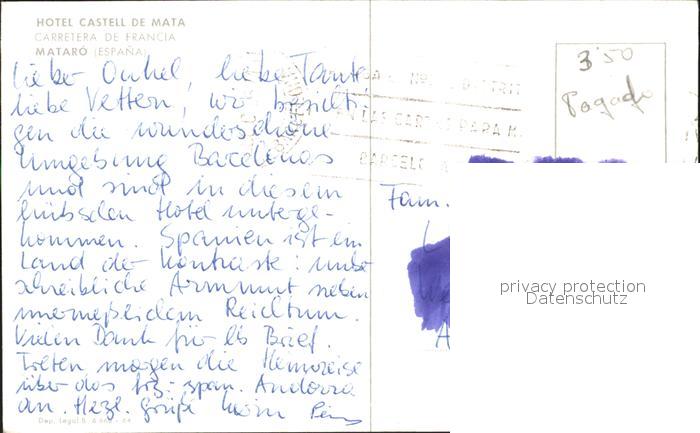 HOTEL CASTELL DE MATA
CARRETERA DE FRANCIA
MATARÓ (ESPAÑA)
lieber Onkel, liebe Tante
liebe Vettern, wir besichti-
gen die wunderschöne
Umgebung Barcelonas
und sind in diesem
hübschen Hotel unterge-
kommen. Spanien ist ein
Land der Kontraste: unbe
schreibliche Armut neben
unermeßlichem Reichtum.
Vielen Dank für lb Brief.
Treten morgen die Heimreise
über das frz.-span. Andorra
an. Herzl. Grüße
Dep. Legal B.
LAS CARTAS PARA
BARCELO
3'50
Pagado
Fam.
privacy protection
Datenschutz